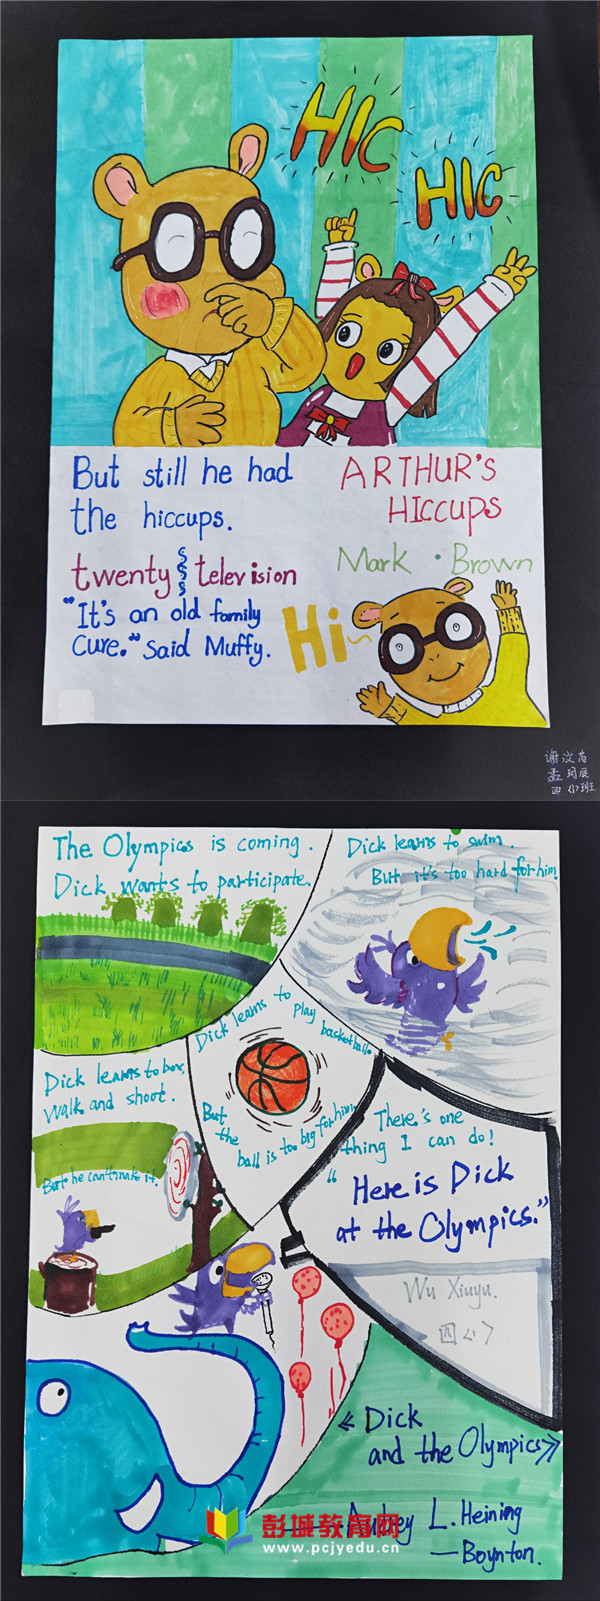 HIC
HIC
But still he had
the hiccups.
twenty television
"It's an old family
Cure." Said Muffy.
ARTHUR'S
HICCUPS
Mark · Brown
Hi~
孟珂辰
四(1)班
The Olympics is coming.
Dick wants to participate.
Dick learns to swim.
But it's too hard for him.
Dick learns to play basketball.
But
the
ball is too big for him.
Dick learns to box,
walk and shoot.
But he can't make it.
There's one
thing I can do!
"Here is Dick
at the Olympics."
Wu Xiuyu.
四(1)
《Dick
and the Olympics》
Audrey L. Heining
—Boynton.
彭城教育网
www.pcjyedu.cn